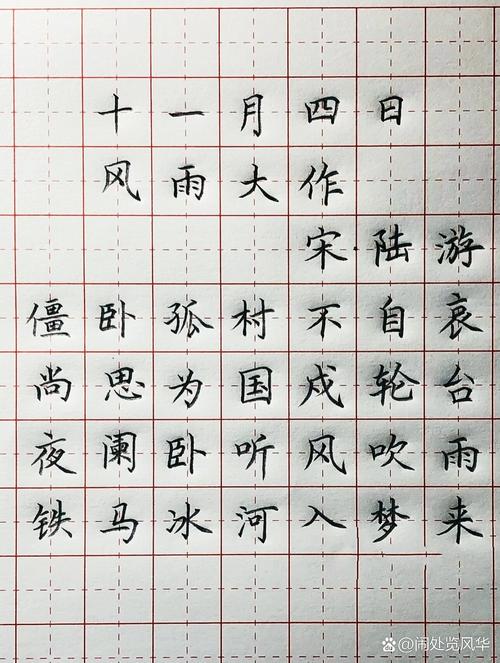 十一月四日
风雨大作
宋·陆游
僵卧孤村不自哀
尚思为国戍轮台
夜阑卧听风吹雨
铁马冰河入梦来
@闹处览风华